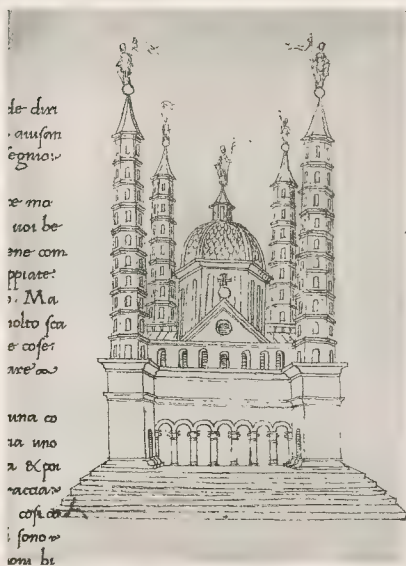 de diri
auisam
segnio
re mo
uoi be
ene com
ppiate
Ma
molto sca
e cose
are
una co
ia uno
a & poi
raccia
cosi co
i sono
oni bi